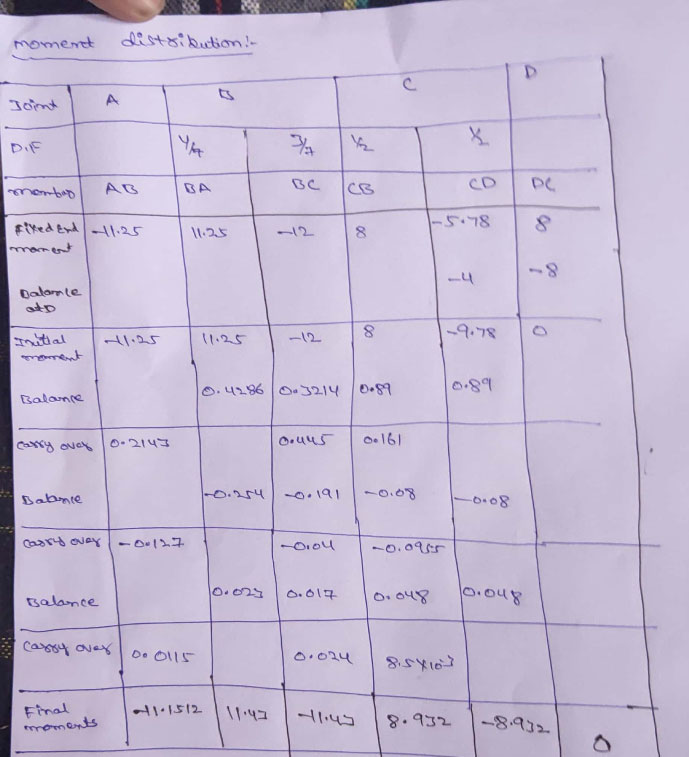 moment distribution:-
Joint A B C D
D.F 4/7 3/7 1/2 1/2
member AB BA BC CB CD DC
Fixed End moment -11.25 11.25 -12 8 -5.78 8
Balance at D -4 -8
Initial moment -11.25 11.25 -12 8 -9.78 0
Balance 0.4286 0.3214 0.89 0.89
Carry over 0.2143 0.445 0.161
Balance -0.254 -0.191 -0.08 -0.08
Carry over -0.127 -0.04 -0.0955
Balance 0.023 0.017 0.048 0.048
Carry over 0.0115 0.024 8.5×10-3
Final moments -11.1512 11.43 -11.43 8.932 -8.932 0